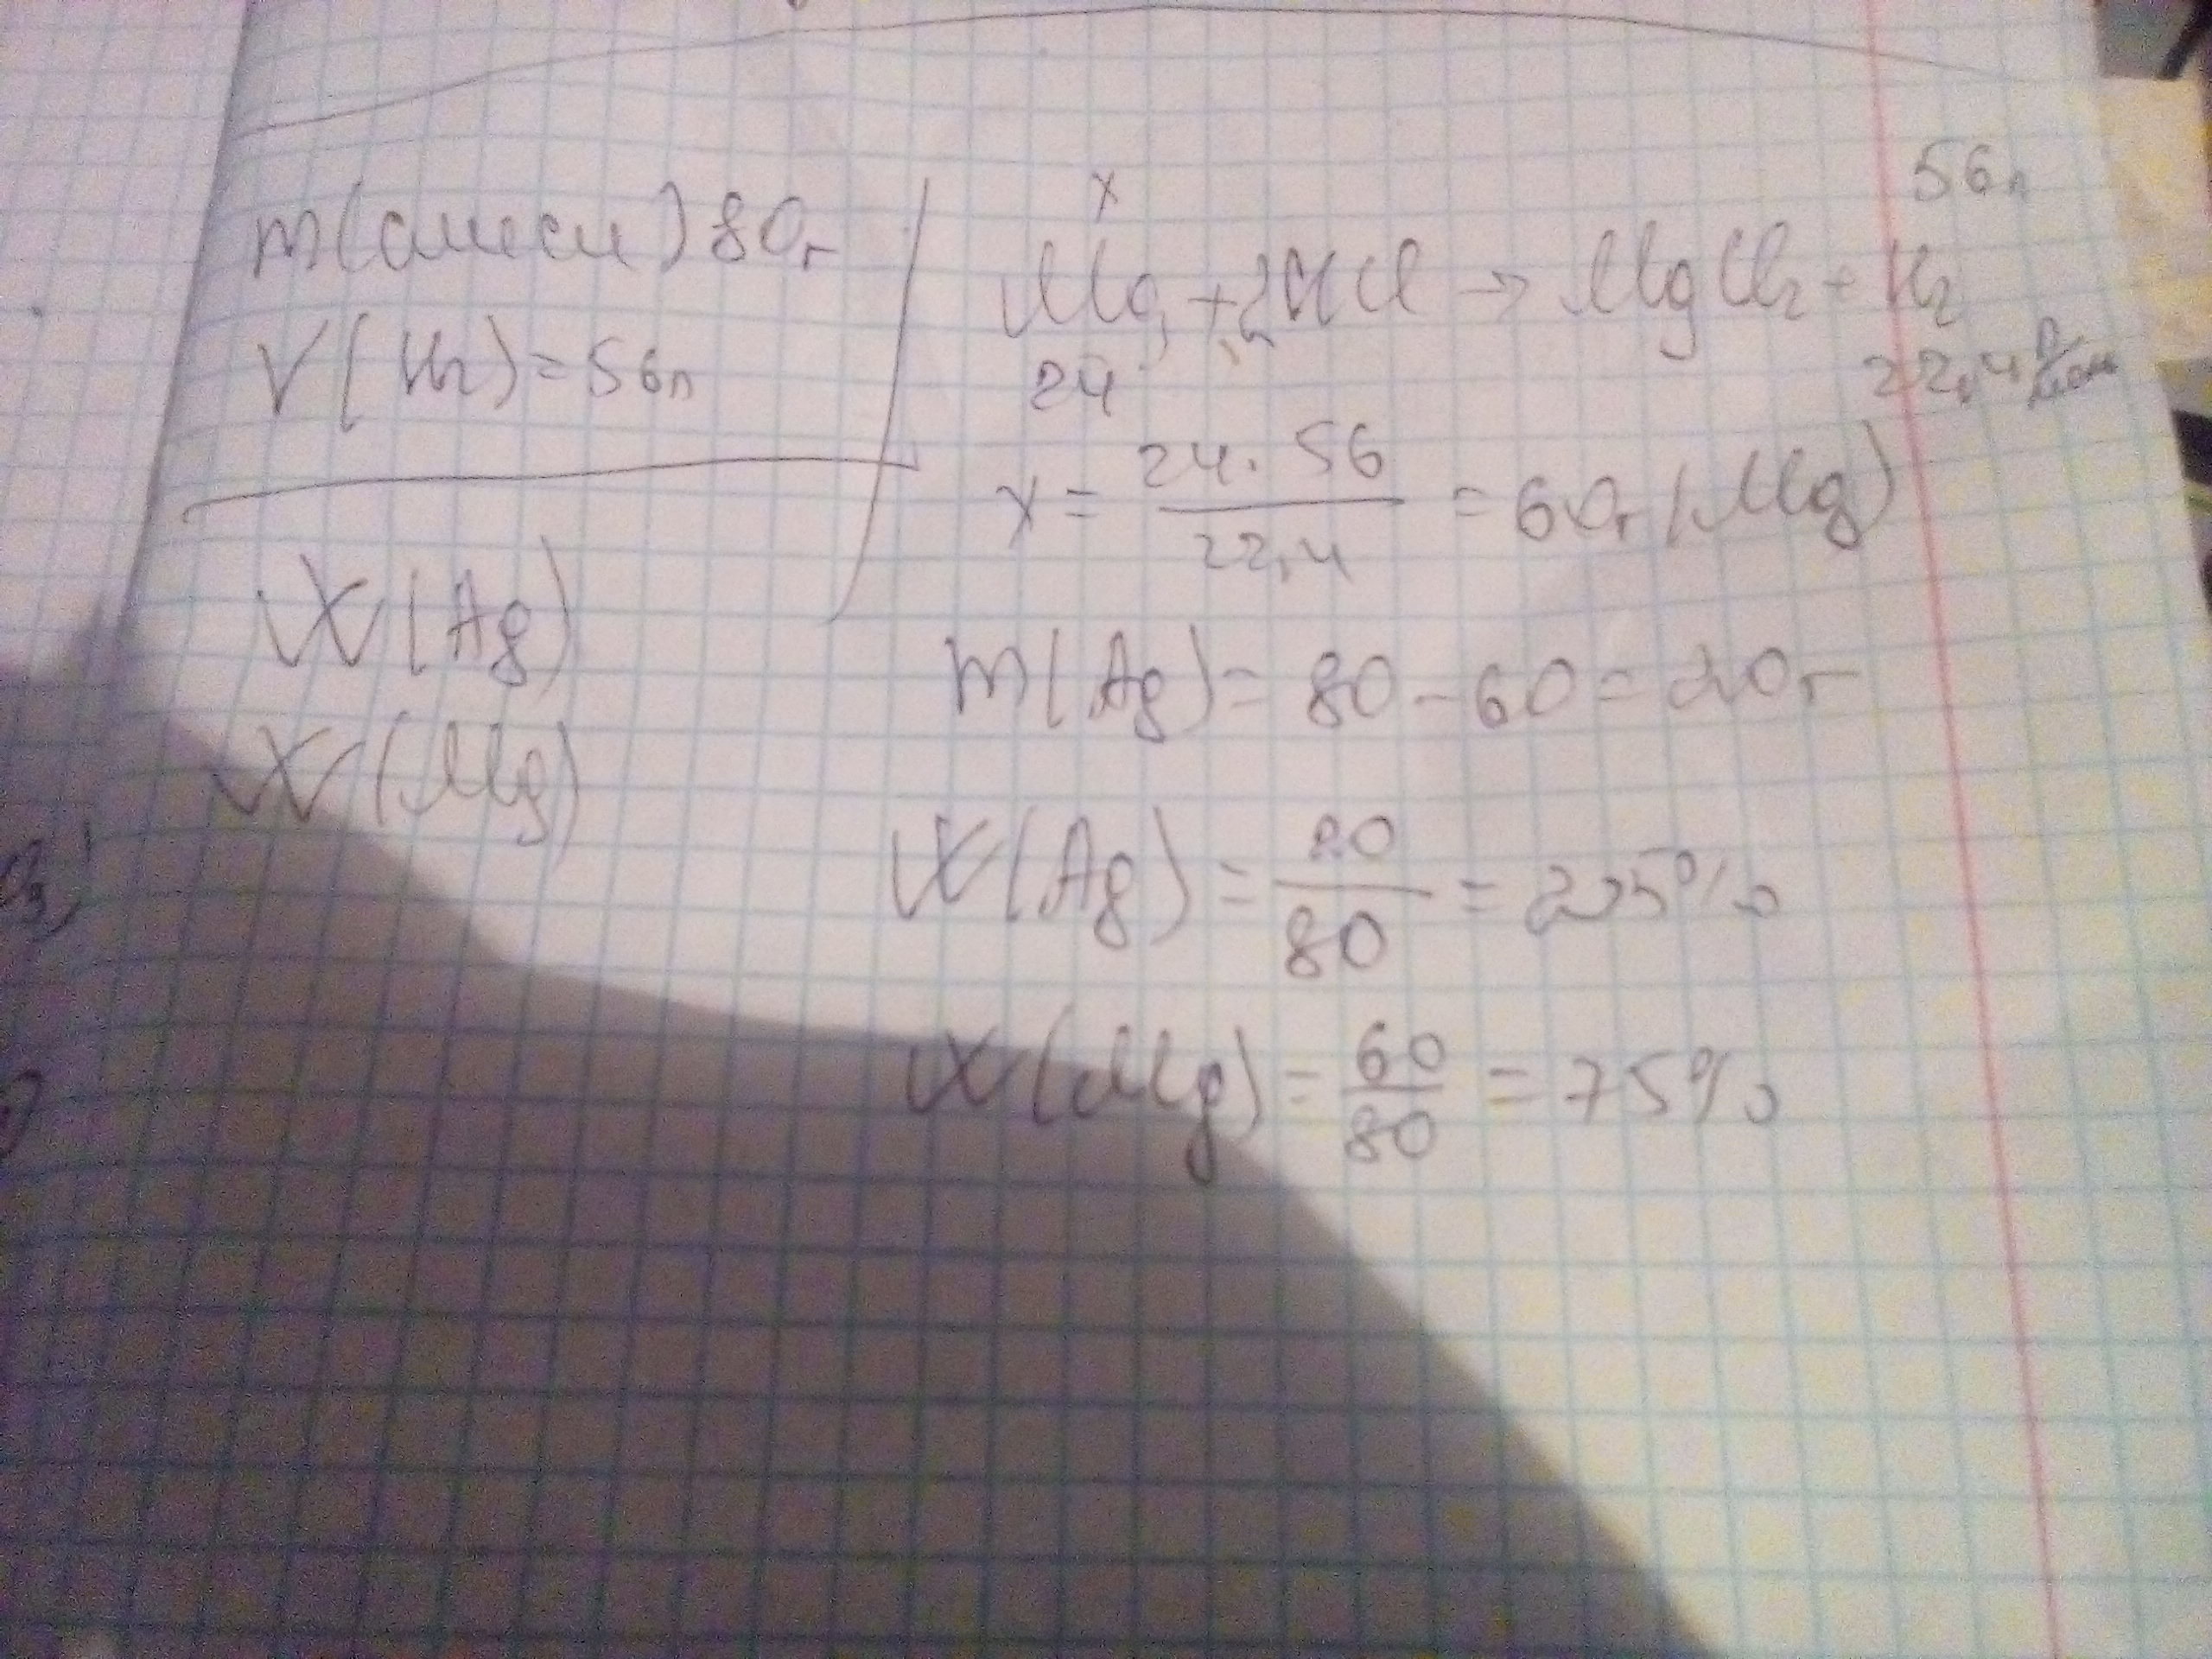 m(смеси) 80г
V(H₂) = 56л
W(Ag)
W(Mg)
x 56л
Mg + 2HCl → MgCl₂ + H₂
24 22,4 л/моль
x = 24 · 56 / 22,4 = 60г (Mg)
m(Ag) = 80 - 60 = 20г
W(Ag) = 20/80 = 25%
W(Mg) = 60/80 = 75%